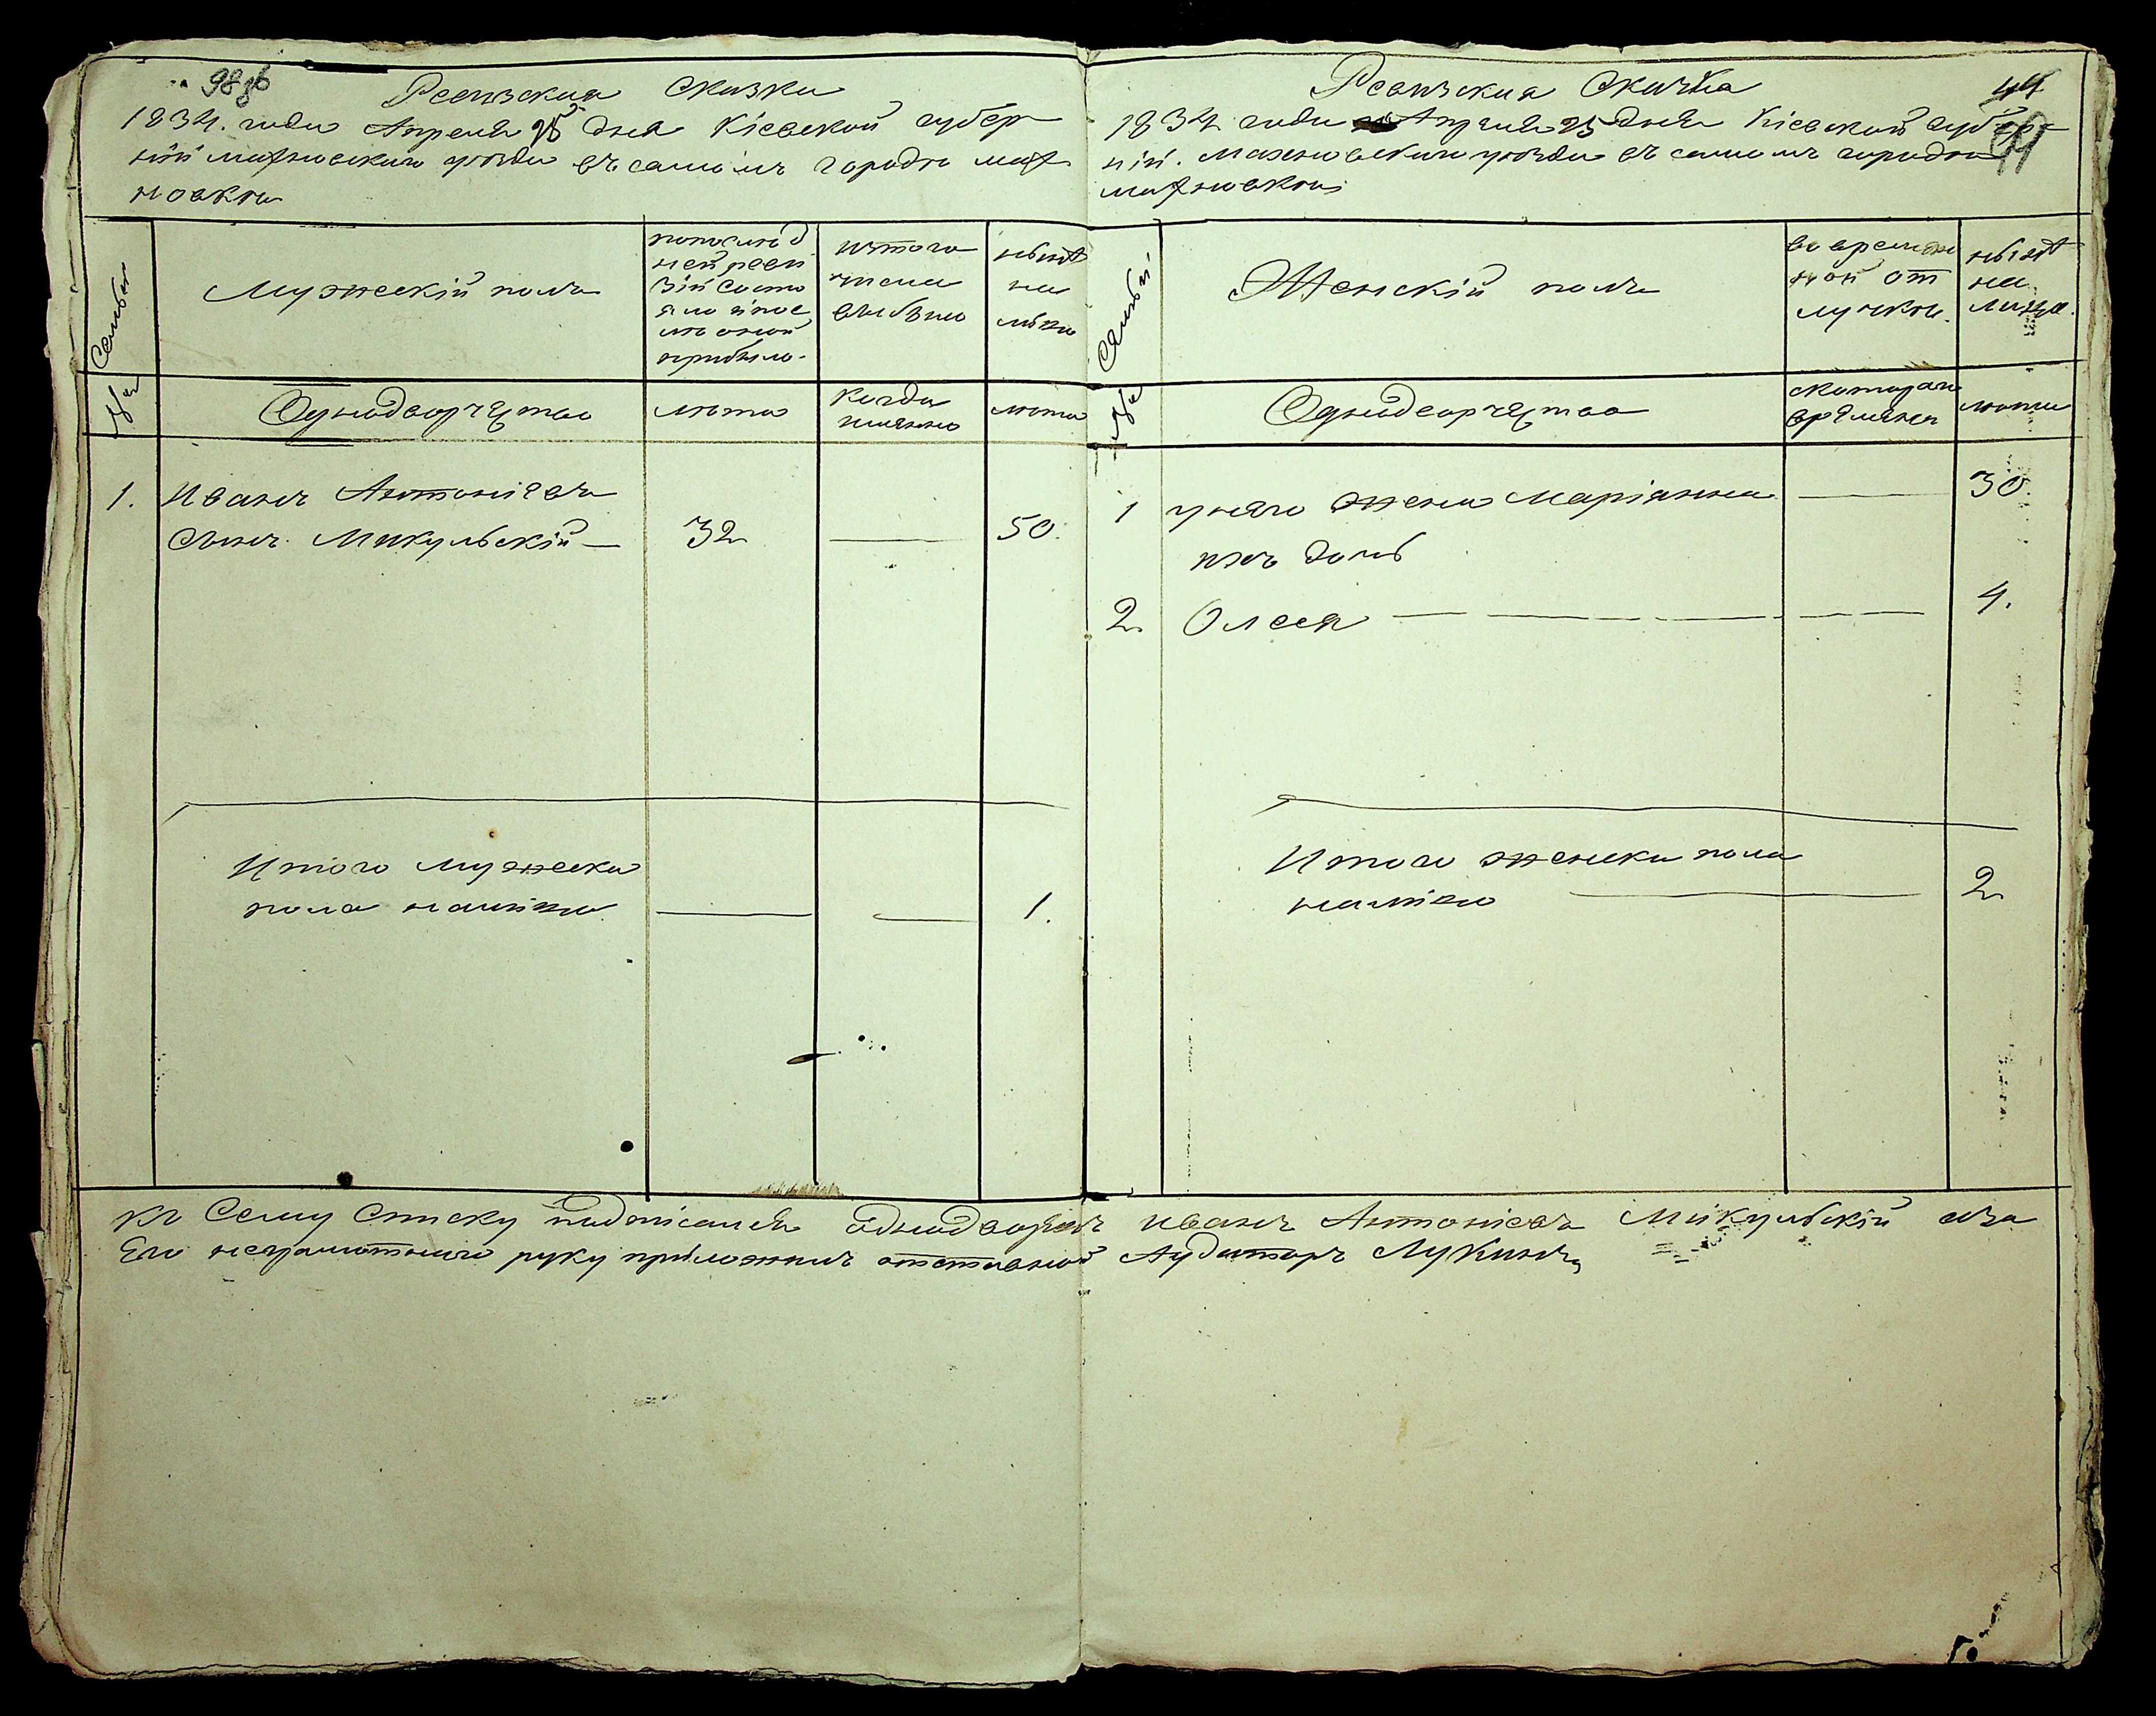 98 об
Ревизская Сказка
1834. года Апреля 25 дня Кіевской губер
ніи махновскаго уезда въ самомъ городе мах
новки
Семьи
Мужескій полъ
попослед
ней реви
зіи состо
яло и пос
ле оной
прибыло.
изтого
числа
выбыло
ныне
на
лицо
№
Однодворчество
лета
Когда
именно
лета
1. Иванъ Антоніевъ
Сынъ Микульскій — 32 — 50.
Итого мужеска
пола налицо — — 1.
Ревизская Сказка
44
99
1834 года Апреля 25 дня Кіевской губер
ніи. Махновскаго уезда въ самомъ городе
махновки
Семьи.
Женскій полъ
во времен
ной от
лучки.
ныне
на
лицо.
№
Однодворчество
скотораго
времяни
лета
1 унего жена Маріянна — 30.
ихъ дочь
2. Олеся — — — — 4.
Итого женска пола
налицо — 2
Къ Сему Списку подписался Однодворецъ Иванъ Антоніевъ Микульскій аза
Его неграмотнаго руку приложилъ отставной Аудиторъ Лукинъ